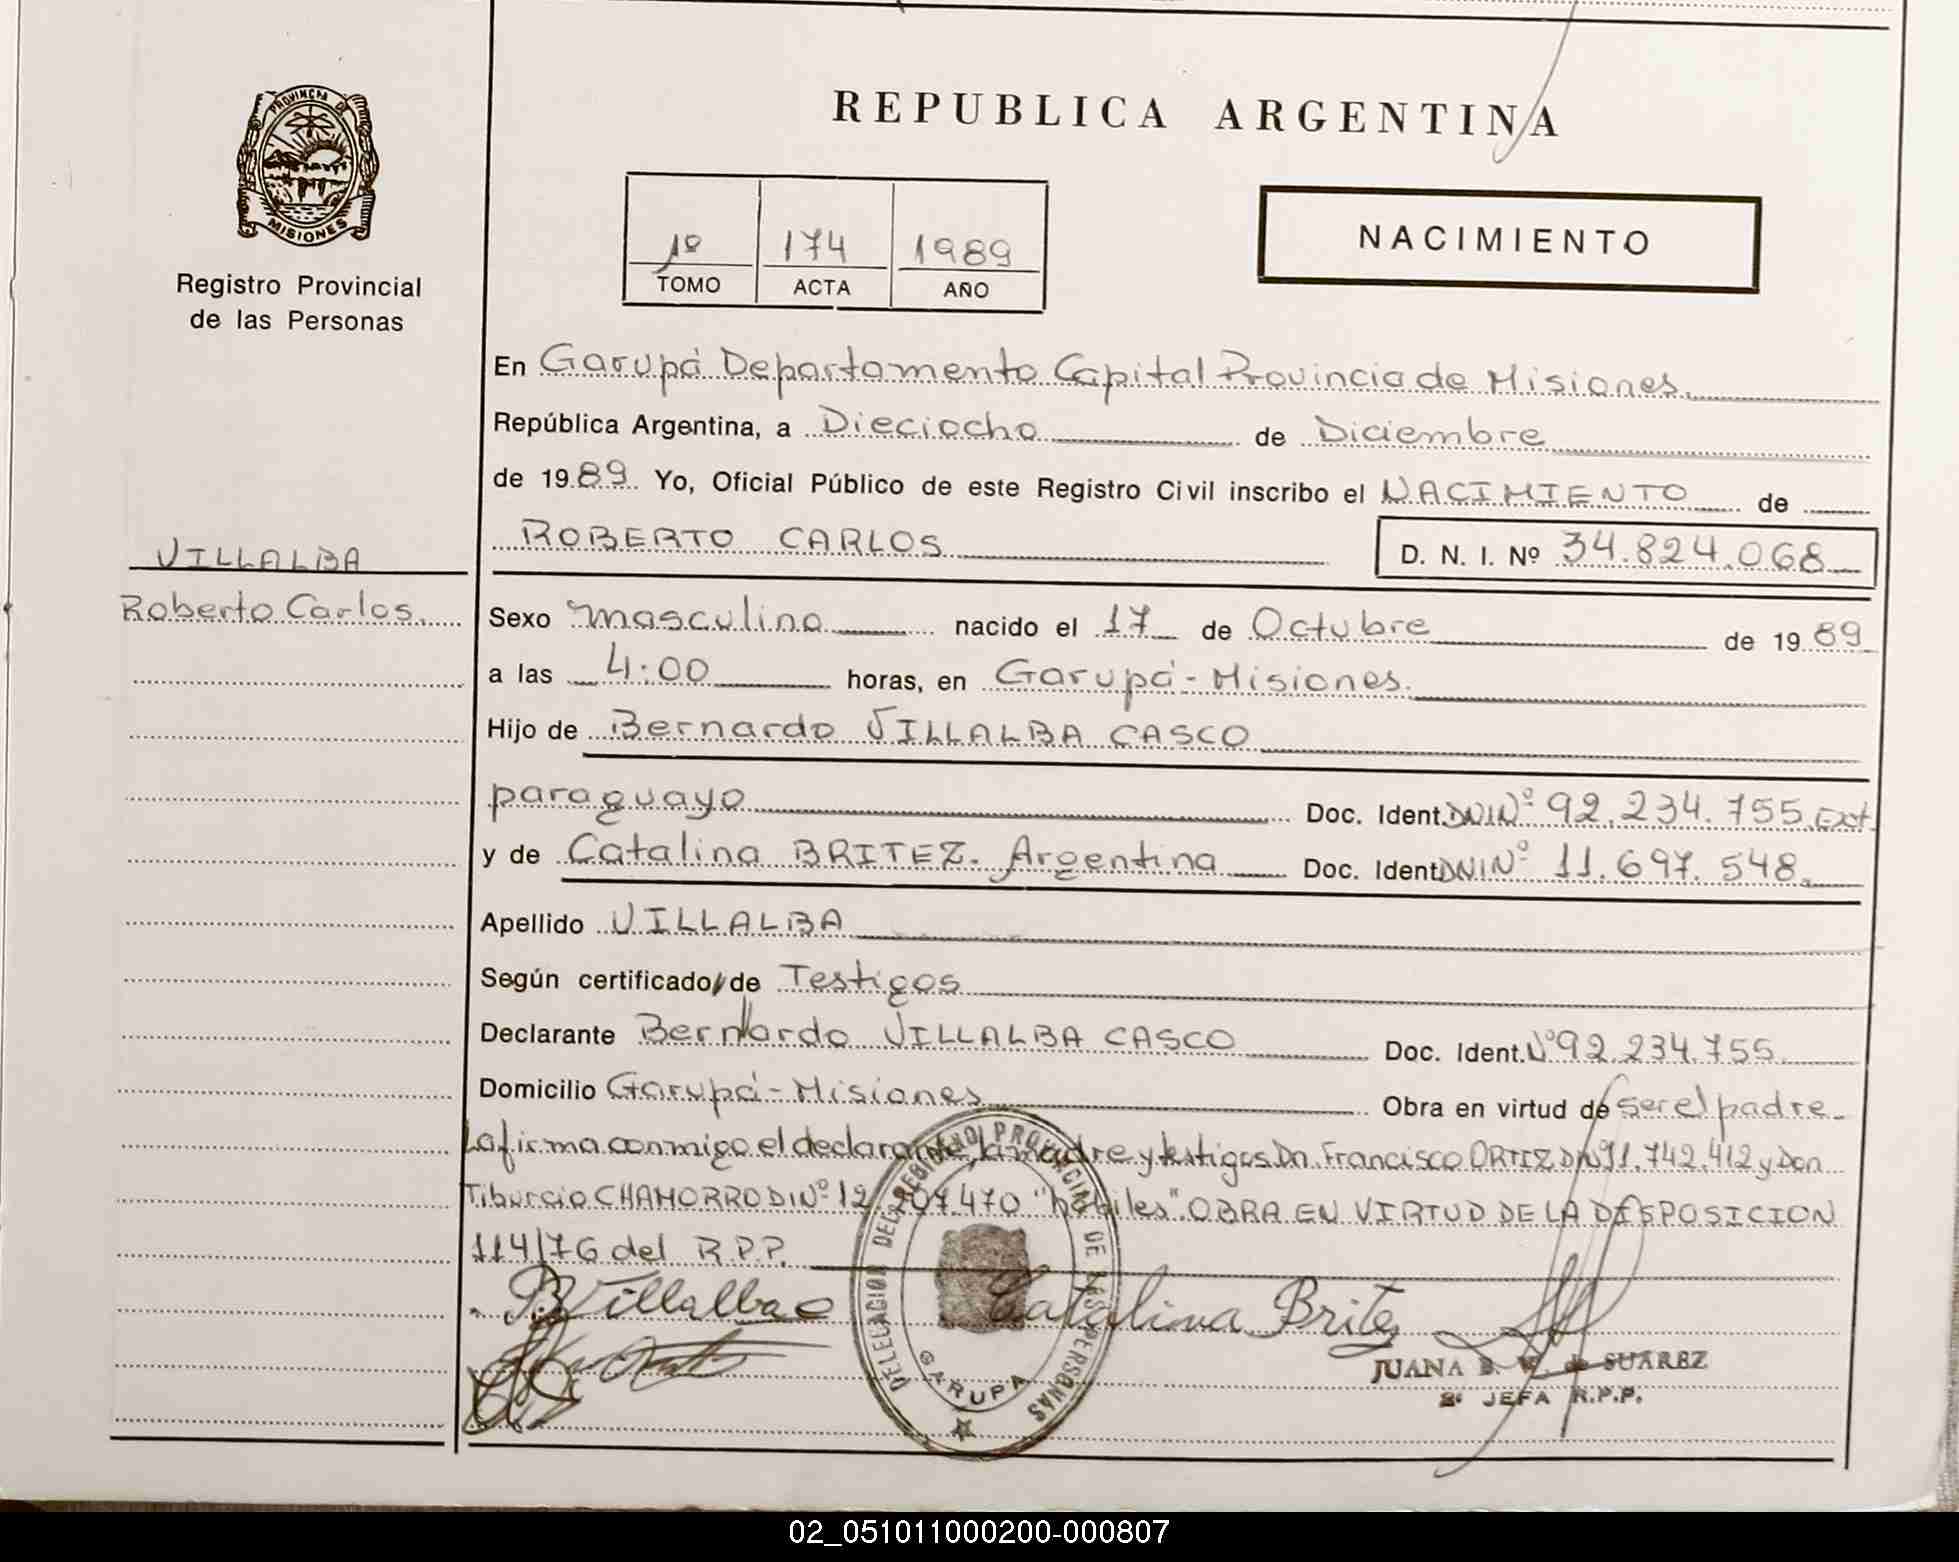 PROVINCIA DE
MISIONES
Registro Provincial
de las Personas
REPUBLICA ARGENTINA
1º 174 1989
TOMO ACTA AÑO
NACIMIENTO
En Garupá Departamento Capital Provincia de Misiones.
República Argentina, a Dieciocho de Diciembre
de 1989. Yo, Oficial Público de este Registro Civil inscribo el NACIMIENTO de
ROBERTO CARLOS D. N. I. Nº 34.824.068
VILLALBA
Roberto Carlos.
Sexo masculino nacido el 17 de Octubre de 1989
a las 4:00 horas, en Garupá - Misiones.
Hijo de Bernardo VILLALBA CASCO
paraguayo Doc. Ident. DNI Nº 92.234.755 Ext.
y de Catalina BRITEZ. Argentina Doc. Ident. DNI Nº 11.697.548.
Apellido VILLALBA
Según certificado de Testigos
Declarante Bernardo VILLALBA CASCO Doc. Ident. Nº 92.234.755
Domicilio Garupá - Misiones Obra en virtud de ser el padre
La firma conmigo el declarante, la madre y testigos Dn. Francisco ORTIZ 742.412 y Don
Tiburcio CHAMORRO DI Nº 12.707.470 "hábiles". OBRA EN VIRTUD DE LA DISPOSICION
114/76 del R.P.P.
B Villalba C Catalina Britez
DELEGACION DEL REGISTRO PROVINCIAL DE LAS PERSONAS
GARUPA
JUANA B. W. de SUAREZ
2ª JEFA R.P.P.
02_051011000200-000807